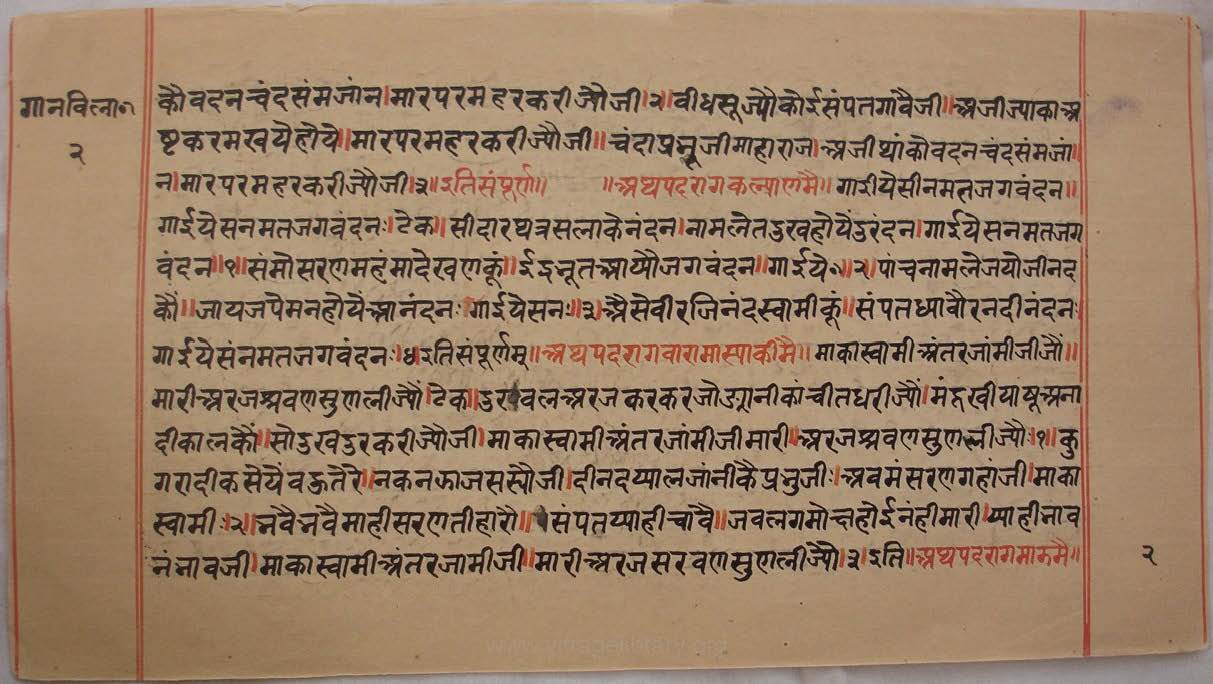 गानविला॰
२
कौवदनचंदसंमजांन।मारपरमहरकरीज्यौजी।२।वीधसूज्यौकोईसंपतगावैजी॥अजीज्याकाअ
ष्टकरमखयेहोये॥मारपरमहरकरीज्यौजी॥चंदाप्रभूजीमाहाराज।अजीथांकोवदनचंदसंमजां॥
न।मारपरमहरकरीज्यौजी।३॥इतिसंपूर्ण॥ ॥अथपदरागकल्याणमै॥गाईयेसीनमतजगवंदन॥
गाईयेसनमतजगवंदनः।टेक॥सीदारथत्रसलाकेनंदन।नामलेतदुखहोयेदुरंदन।गाईयेसनमतजग
वंदन॥१॥संमोसरणमहंमादेखणकूं॥ईद्रभूतआय्यौजगवंदन॥गाईये॰।२।पांचनामलेजयोजीनद
कौं॥जायजपेमनहोयेंआनंदनः।गाईयेसनः॥३।अैसेवीरजिनंदस्वामीकूं॥संपतध्यावौरनदीनंदनः
गाईयेसंनमतजगवंदनः।४इतिसंपूर्णम्॥अथपदरागवारामास्याकीमै॥माकास्वामीअंतरजांमीजीजौं॥
मारीअरजश्रवणसुणलीज्यौं।टेक।दुरवलअरजकरकरजोडूानीकांचीतधरीज्यौं।मंदुखीयाषूअना
दीकालकौं॥सोदुखदुरकरीज्यौजी।माकास्वामीअंतरजांमीजीमारी॥अरजश्रवणसुणलीज्यौः।१।कु
गरादीकसेयेंवद्धतैरे।नकनकाजसस्यौजी।दीनदय्यालजांनीकैप्रभुजीः।अवमंसरणगहांजी।माका
स्वामीः।२।भवैभवैमाहीसरणतीहारौ॥संपतय्याहीचावै॥जवलगमोक्षहोईनंहीमारी।य्याहीभाव
नंभावजी।माकास्वामीअंतरजामीजी॥मारीअरजसरवणसुणलीज्यौ।३।इति॥अथपदरागमाढमै॥
२